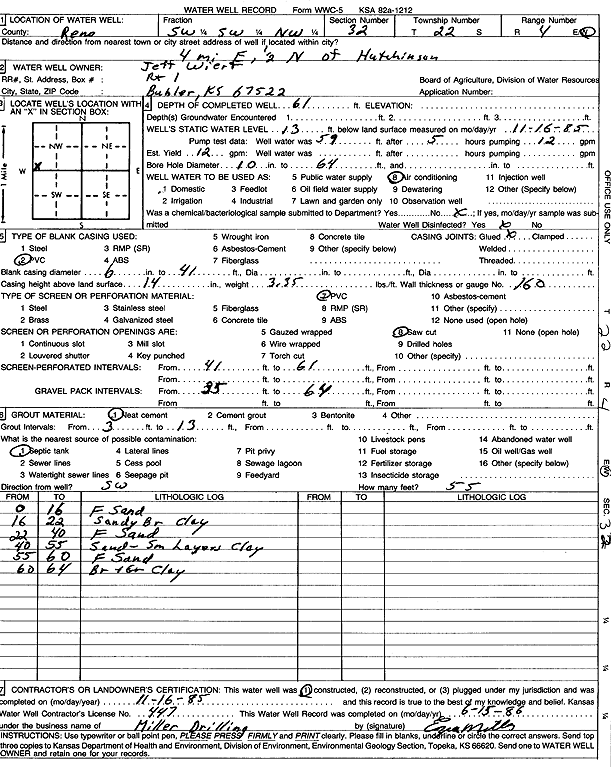 WATER WELL RECORD Form WWC-5 KSA 82a-1212
1 LOCATION OF WATER WELL: Fraction Section Number Township Number Range Number
County: Reno SW ¼ SW ¼ NW ¼ 32 T 22 S R 4 E/W
Distance and direction from nearest town or city street address of well if located within city?
4 mi E, 2 N of Hutchinson
2 WATER WELL OWNER: Jeff Wiert
RR#, St. Address, Box # : Rt 1 Board of Agriculture, Division of Water Resources
City, State, ZIP Code : Buhler, KS 67522 Application Number:
3 LOCATE WELL'S LOCATION WITH AN "X" IN SECTION BOX:
N
NW NE
W X E
SW SE
S
1 Mile
4 DEPTH OF COMPLETED WELL 61 ft. ELEVATION:
Depth(s) Groundwater Encountered 1. ft. 2. ft. 3. ft.
WELL'S STATIC WATER LEVEL 13 ft. below land surface measured on mo/day/yr 11-16-85
Pump test data: Well water was 59 ft. after 5 hours pumping 12 gpm
Est. Yield 12 gpm: Well water was ft. after hours pumping gpm
Bore Hole Diameter 10 in. to 64 ft., and in. to ft.
WELL WATER TO BE USED AS: 5 Public water supply 8 Air conditioning 11 Injection well
1 Domestic 3 Feedlot 6 Oil field water supply 9 Dewatering 12 Other (Specify below)
2 Irrigation 4 Industrial 7 Lawn and garden only 10 Observation well
Was a chemical/bacteriological sample submitted to Department? Yes No X; If yes, mo/day/yr sample was submitted Water Well Disinfected? Yes X No
5 TYPE OF BLANK CASING USED: 5 Wrought iron 8 Concrete tile CASING JOINTS: Glued X Clamped
1 Steel 3 RMP (SR) 6 Asbestos-Cement 9 Other (specify below) Welded
2 PVC 4 ABS 7 Fiberglass Threaded
Blank casing diameter 6 in. to 41 ft., Dia in. to ft., Dia in. to ft.
Casing height above land surface 14 in., weight 3.35 lbs./ft. Wall thickness or gauge No. 160
TYPE OF SCREEN OR PERFORATION MATERIAL: 7 PVC 10 Asbestos-cement
1 Steel 3 Stainless steel 5 Fiberglass 8 RMP (SR) 11 Other (specify)
2 Brass 4 Galvanized steel 6 Concrete tile 9 ABS 12 None used (open hole)
SCREEN OR PERFORATION OPENINGS ARE: 5 Gauzed wrapped 8 Saw cut 11 None (open hole)
1 Continuous slot 3 Mill slot 6 Wire wrapped 9 Drilled holes
2 Louvered shutter 4 Key punched 7 Torch cut 10 Other (specify)
SCREEN-PERFORATED INTERVALS: From 41 ft. to 61 ft., From ft. to ft.
From ft. to ft., From ft. to ft.
GRAVEL PACK INTERVALS: From 35 ft. to 64 ft., From ft. to ft.
From ft. to ft., From ft. to ft.
6 GROUT MATERIAL: 1 Neat cement 2 Cement grout 3 Bentonite 4 Other
Grout Intervals: From 3 ft. to 13 ft., From ft. to ft., From ft. to ft.
What is the nearest source of possible contamination: 10 Livestock pens 14 Abandoned water well
1 Septic tank 4 Lateral lines 7 Pit privy 11 Fuel storage 15 Oil well/Gas well
2 Sewer lines 5 Cess pool 8 Sewage lagoon 12 Fertilizer storage 16 Other (specify below)
3 Watertight sewer lines 6 Seepage pit 9 Feedyard 13 Insecticide storage
Direction from well? SW How many feet? 55
FROM TO LITHOLOGIC LOG FROM TO LITHOLOGIC LOG
0 16 F Sand
16 22 Sandy Br Clay
22 40 F Sand
40 55 Sand- Sm Layers Clay
55 60 F Sand
60 64 Br + Gr Clay
7 CONTRACTOR'S OR LANDOWNER'S CERTIFICATION: This water well was (1) constructed, (2) reconstructed, or (3) plugged under my jurisdiction and was
completed on (mo/day/year) 11-16-85 and this record is true to the best of my knowledge and belief. Kansas
Water Well Contractor's License No. 447 This Water Well Record was completed on (mo/day/yr) 6-15-86
under the business name of Miller Drilling by (signature)
INSTRUCTIONS: Use typewriter or ball point pen, PLEASE PRESS FIRMLY and PRINT clearly. Please fill in blanks, underline or circle the correct answers. Send top
three copies to Kansas Department of Health and Environment, Division of Environment, Environmental Geology Section, Topeka, KS 66620. Send one to WATER WELL
OWNER and retain one for your records.
OFFICE USE ONLY
T 22 R 4 E/W SEC. 32 ¼ ¼ ¼